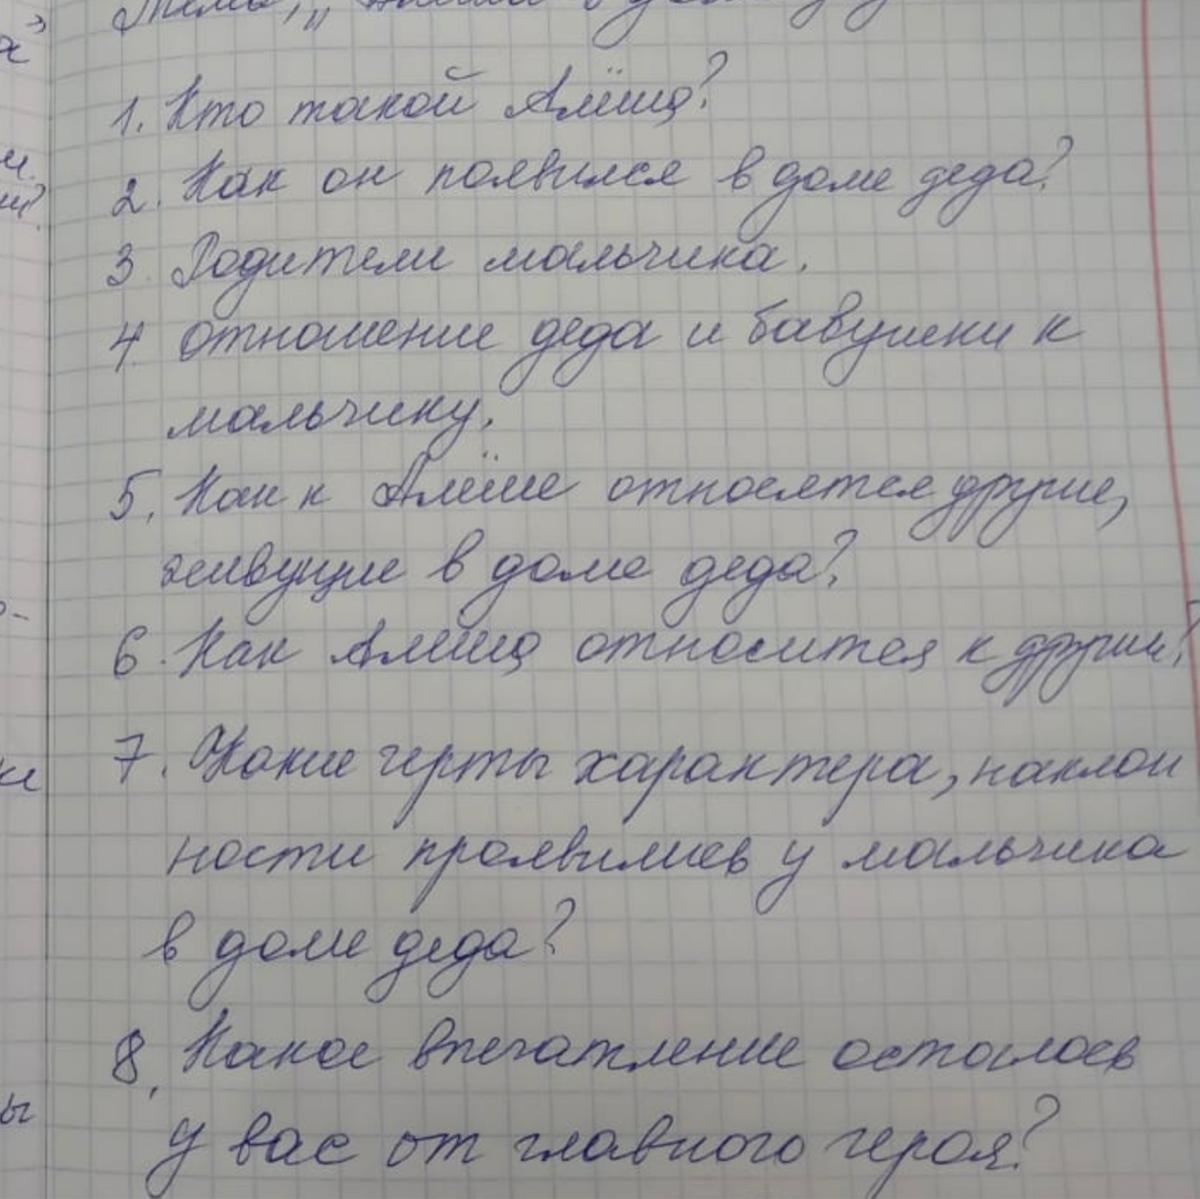 Тема: „
1. Кто такой Алёша?
2. Как он появился в доме деда?
3. Родители мальчика.
4. отношение деда и бабушки к
мальчику.
5. Как к Алёше относятся другие,
живущие в доме деда?
6. Как Алёша относится к другим?
7. Какие черты характера, наклон
ности проявились у мальчика
в доме деда?
8. Какое впечатление осталось
у вас от главного героя?